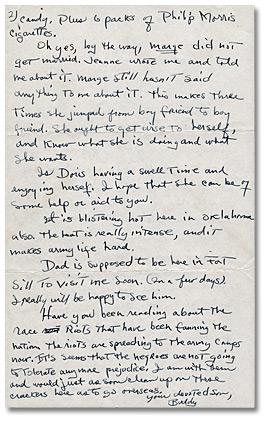 2) candy, Plus 6 packs of Philip Morris
cigarettes.
Oh yes, by the way, Marge did not
get married. Jeanne wrote me and told
me about it. Marge still hasn't said
anything to me about it. This makes three
times she jumped from boy friend to boy
friend. She ought to get wise to herself,
and know what she is doing and what
she wants.
Is Doris having a swell time and
enjoying herself. I hope that she can be of
some help or aid to you.
It is blistering hot here in Oklahoma
also. The heat is really intense, and it
makes army life hard.
Dad is supposed to be here in Fort
Sill to visit me soon. (In a few days).
I really will be happy to see him.
Have you been reading about the
race riots that have been fanning the
nation. the riots are spreading to the army camps
now. It's seems that the negroes are not going
to tolerate any more prejudice. I am with them
and would just as soon clean up on these
crackers here as to go overseas.
Your devoted son,